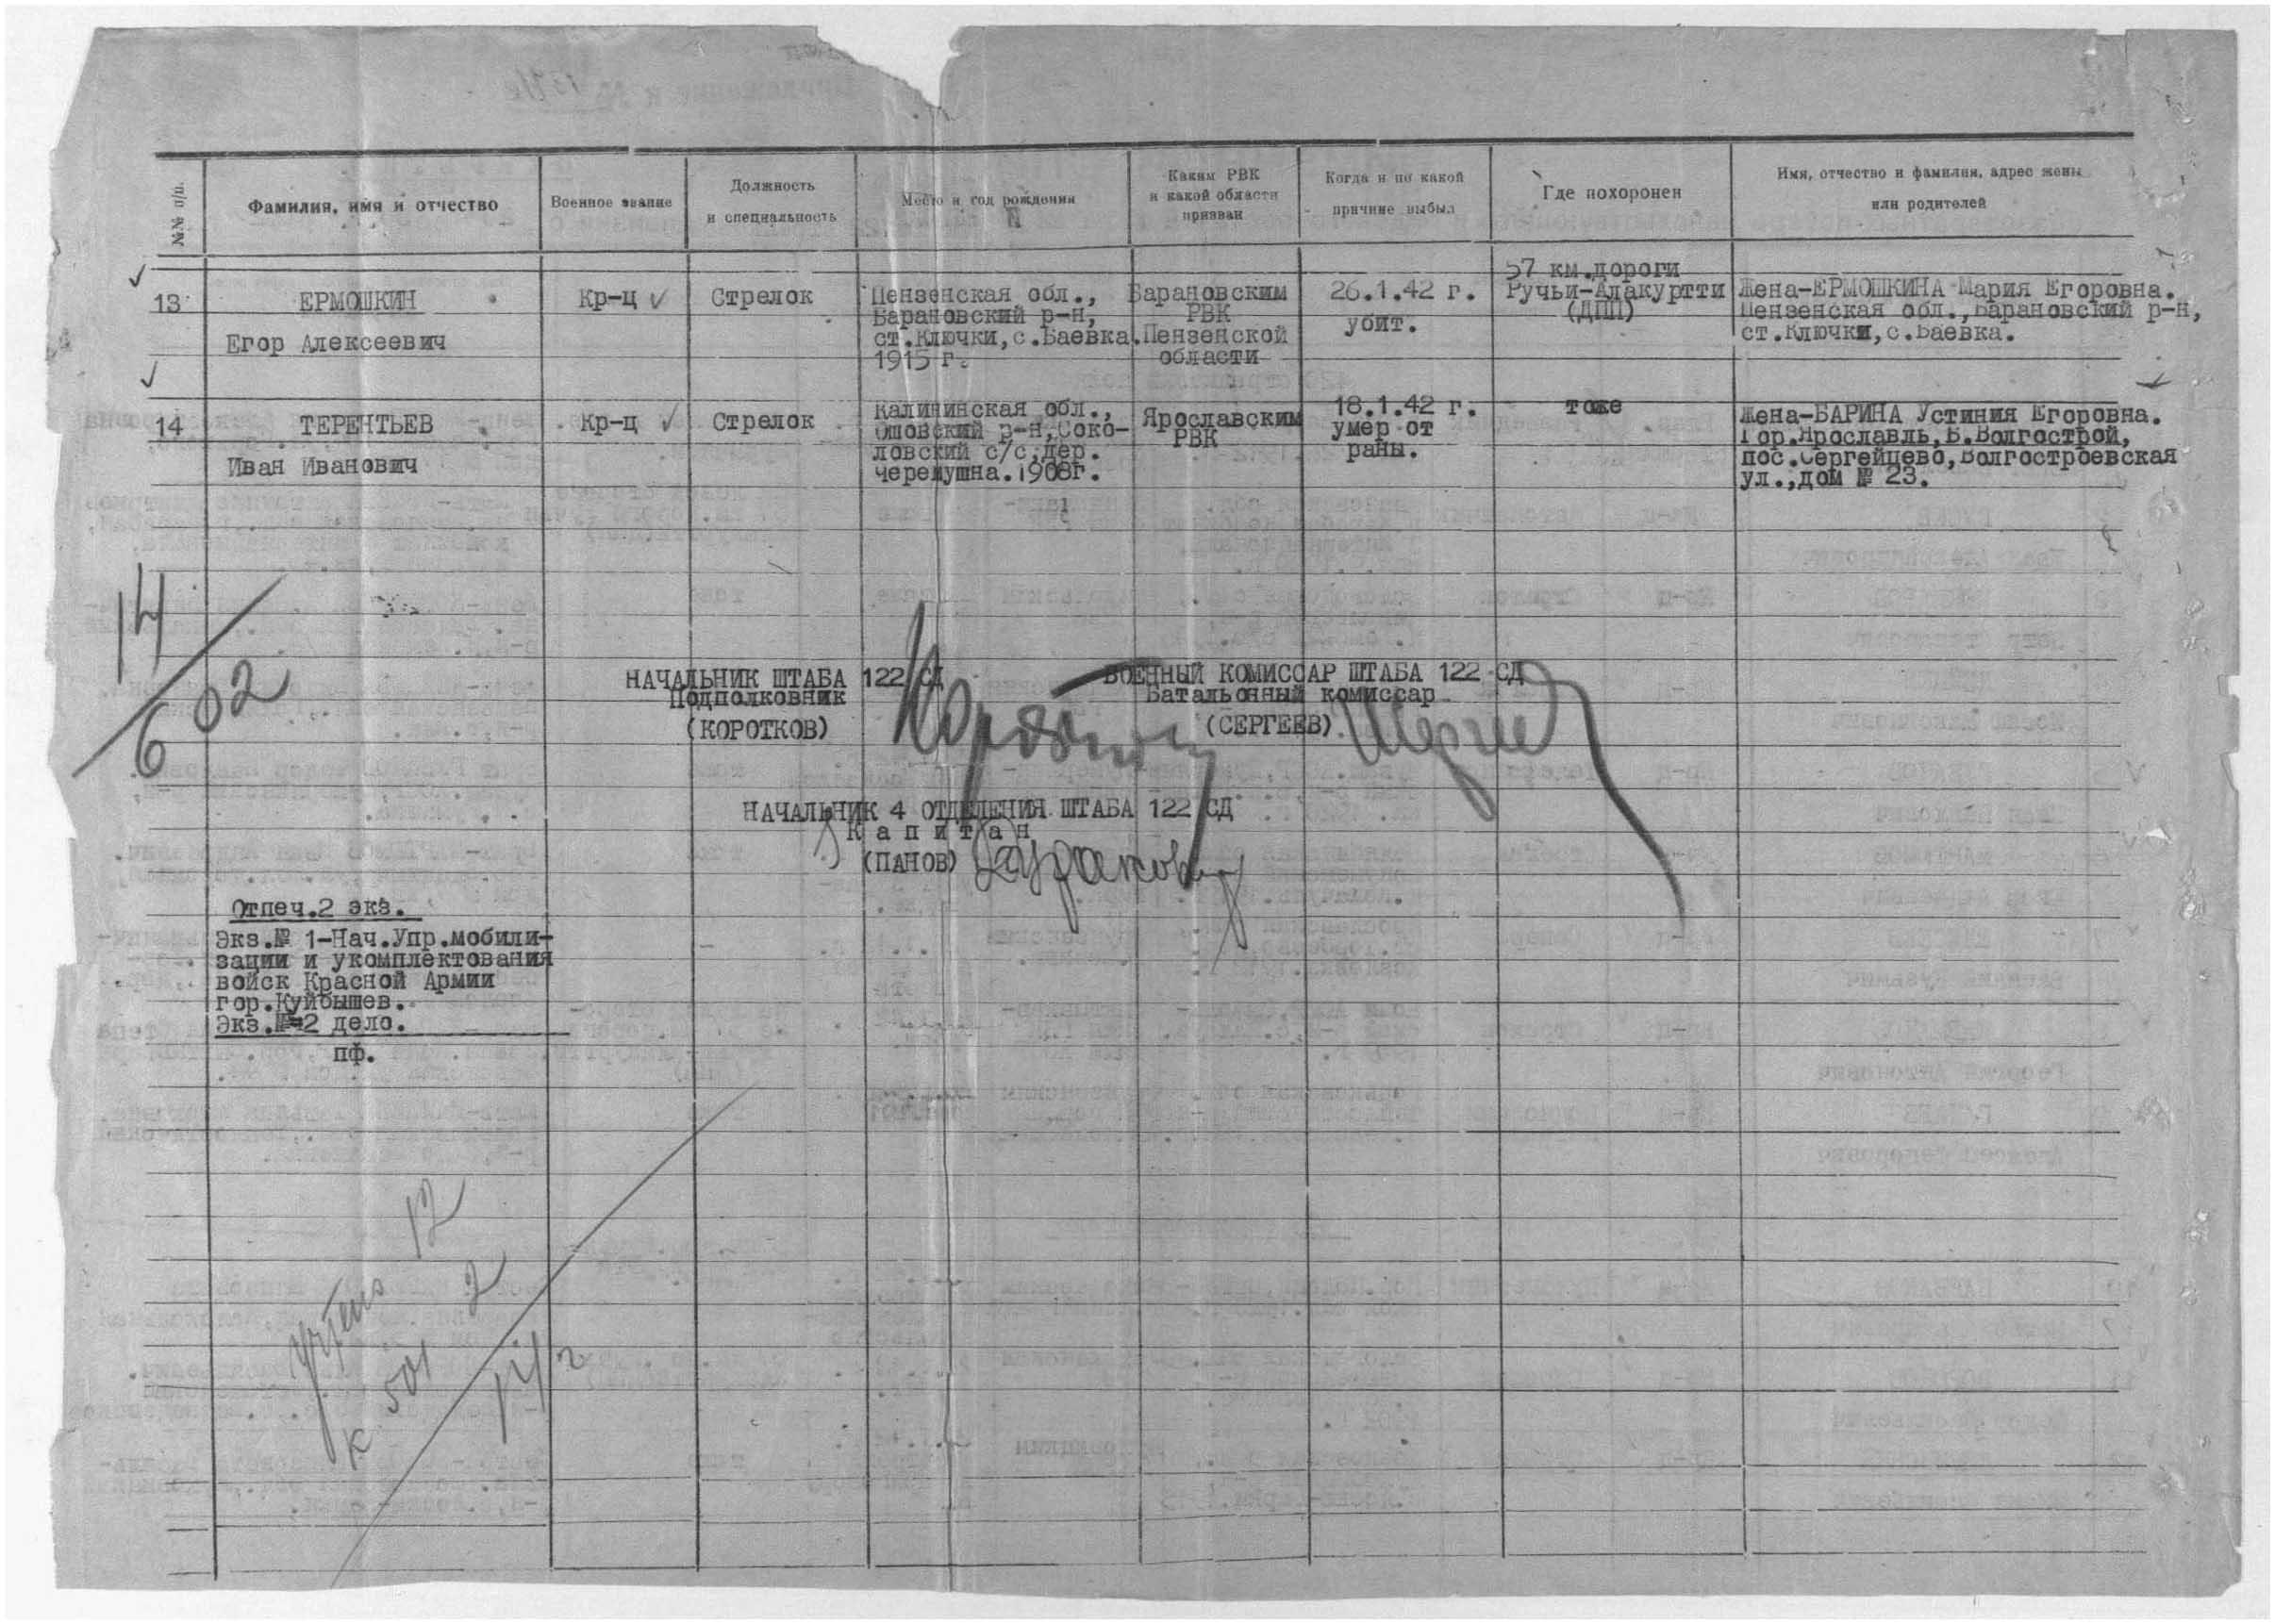 №№ п/п.
Фамилия, имя и отчество
Военное звание
Должность
и специальность
Место и год рождения
Каким РВК
и какой области
призван
Когда и по какой
причине выбыл
Где похоронен
Имя, отчество и фамилия, адрес жены
или родителей
13
ЕРМОШКИН
Егор Алексеевич
Кр-ц
Стрелок
Пензенская обл.,
Барановский р-н,
ст.Ключки,с.Баевка.
1915 г.
Барановским
РВК
Пензенской
области
26.1.42 г.
убит.
57 км.дороги
Ручьи-Алакуртти
(ДПП)
Жена-ЕРМОШКИНА Мария Егоровна.
Пензенская обл.,Барановский р-н,
ст.Ключки,с.Баевка.
14
ТЕРЕНТЬЕВ
Иван Иванович
Кр-ц
Стрелок
Калининская обл.,
Ошовский р-н,Соко-
ловский с/с,дер.
черемушна.1908г.
Ярославским
РВК
18.1.42 г.
умер от
раны.
тоже
Жена-БАРИНА Устиния Егоровна.
Гор.Ярославль,Б.Волгострой,
пос.Сергейцево,Волгостроевская
ул.,дом № 23.
14
602
НАЧАЛЬНИК ШТАБА 122 СД
Подполковник
(КОРОТКОВ)
ВОЕННЫЙ КОМИССАР ШТАБА 122 СД
Батальонный комиссар
(СЕРГЕЕВ)
НАЧАЛЬНИК 4 ОТДЕЛЕНИЯ ШТАБА 122 СД
Капитан
(ПАНОВ)
Отпеч.2 экз.
Экз.№ 1-Нач.Упр.мобили-
зации и укомплектования
войск Красной Армии
гор.Куйбышев.
Экз.№ 2 дело.
пф.
учтено 12
к 501 2